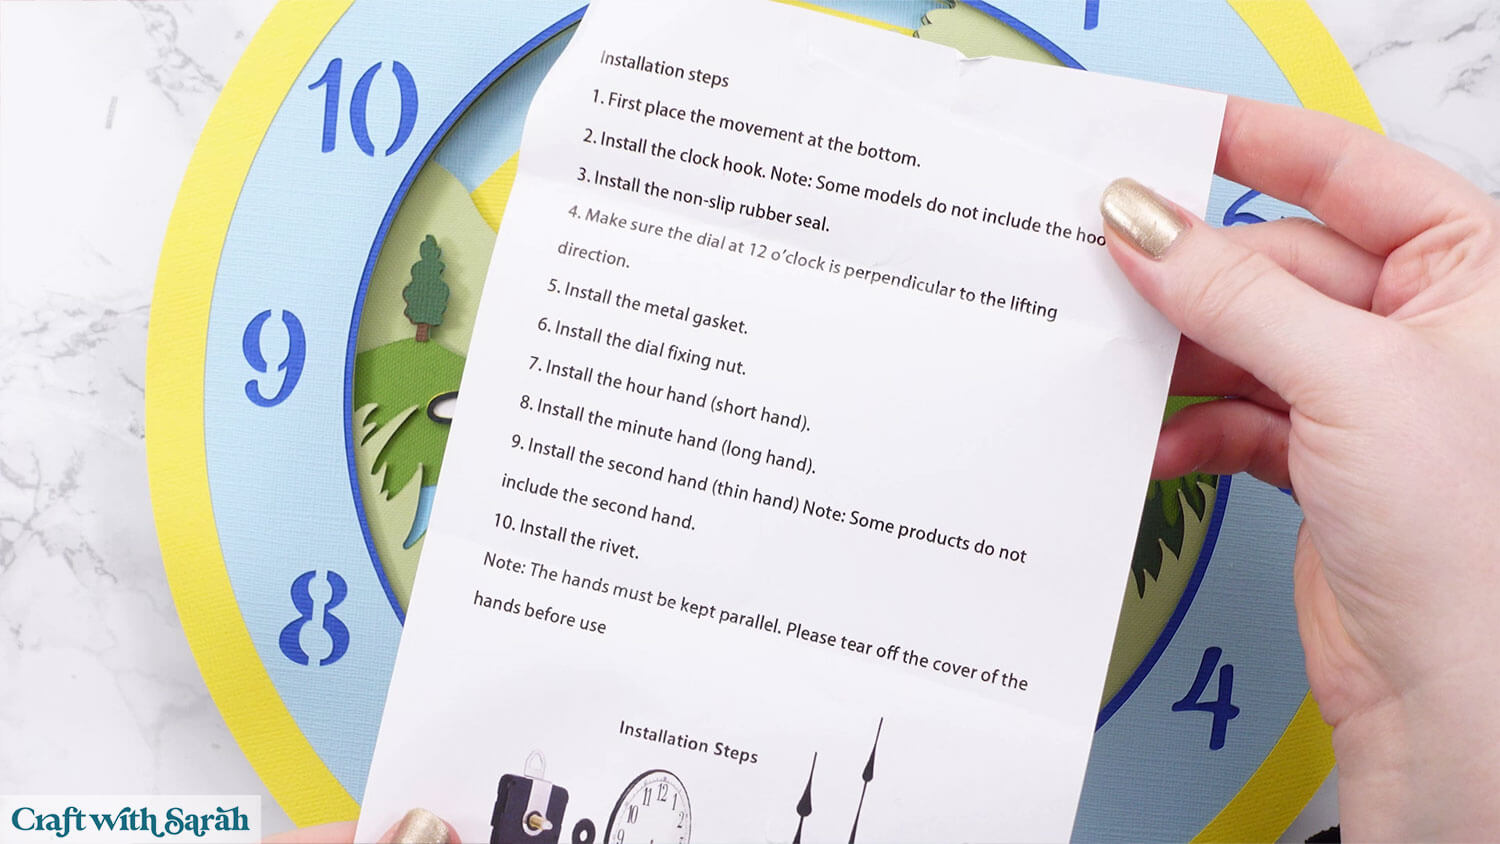 Installation steps
1. First place the movement at the bottom.
2. Install the clock hook. Note: Some models do not include the hoo
3. Install the non-slip rubber seal.
4. Make sure the dial at 12 o'clock is perpendicular to the lifting
direction.
5. Install the metal gasket.
6. Install the dial fixing nut.
7. Install the hour hand (short hand).
8. Install the minute hand (long hand).
9. Install the second hand (thin hand) Note: Some products do not
include the second hand.
10. Install the rivet.
Note: The hands must be kept parallel. Please tear off the cover of the
hands before use
Installation Steps
10
9
8
4
11 12 1
10 2
9
Craft with Sarah